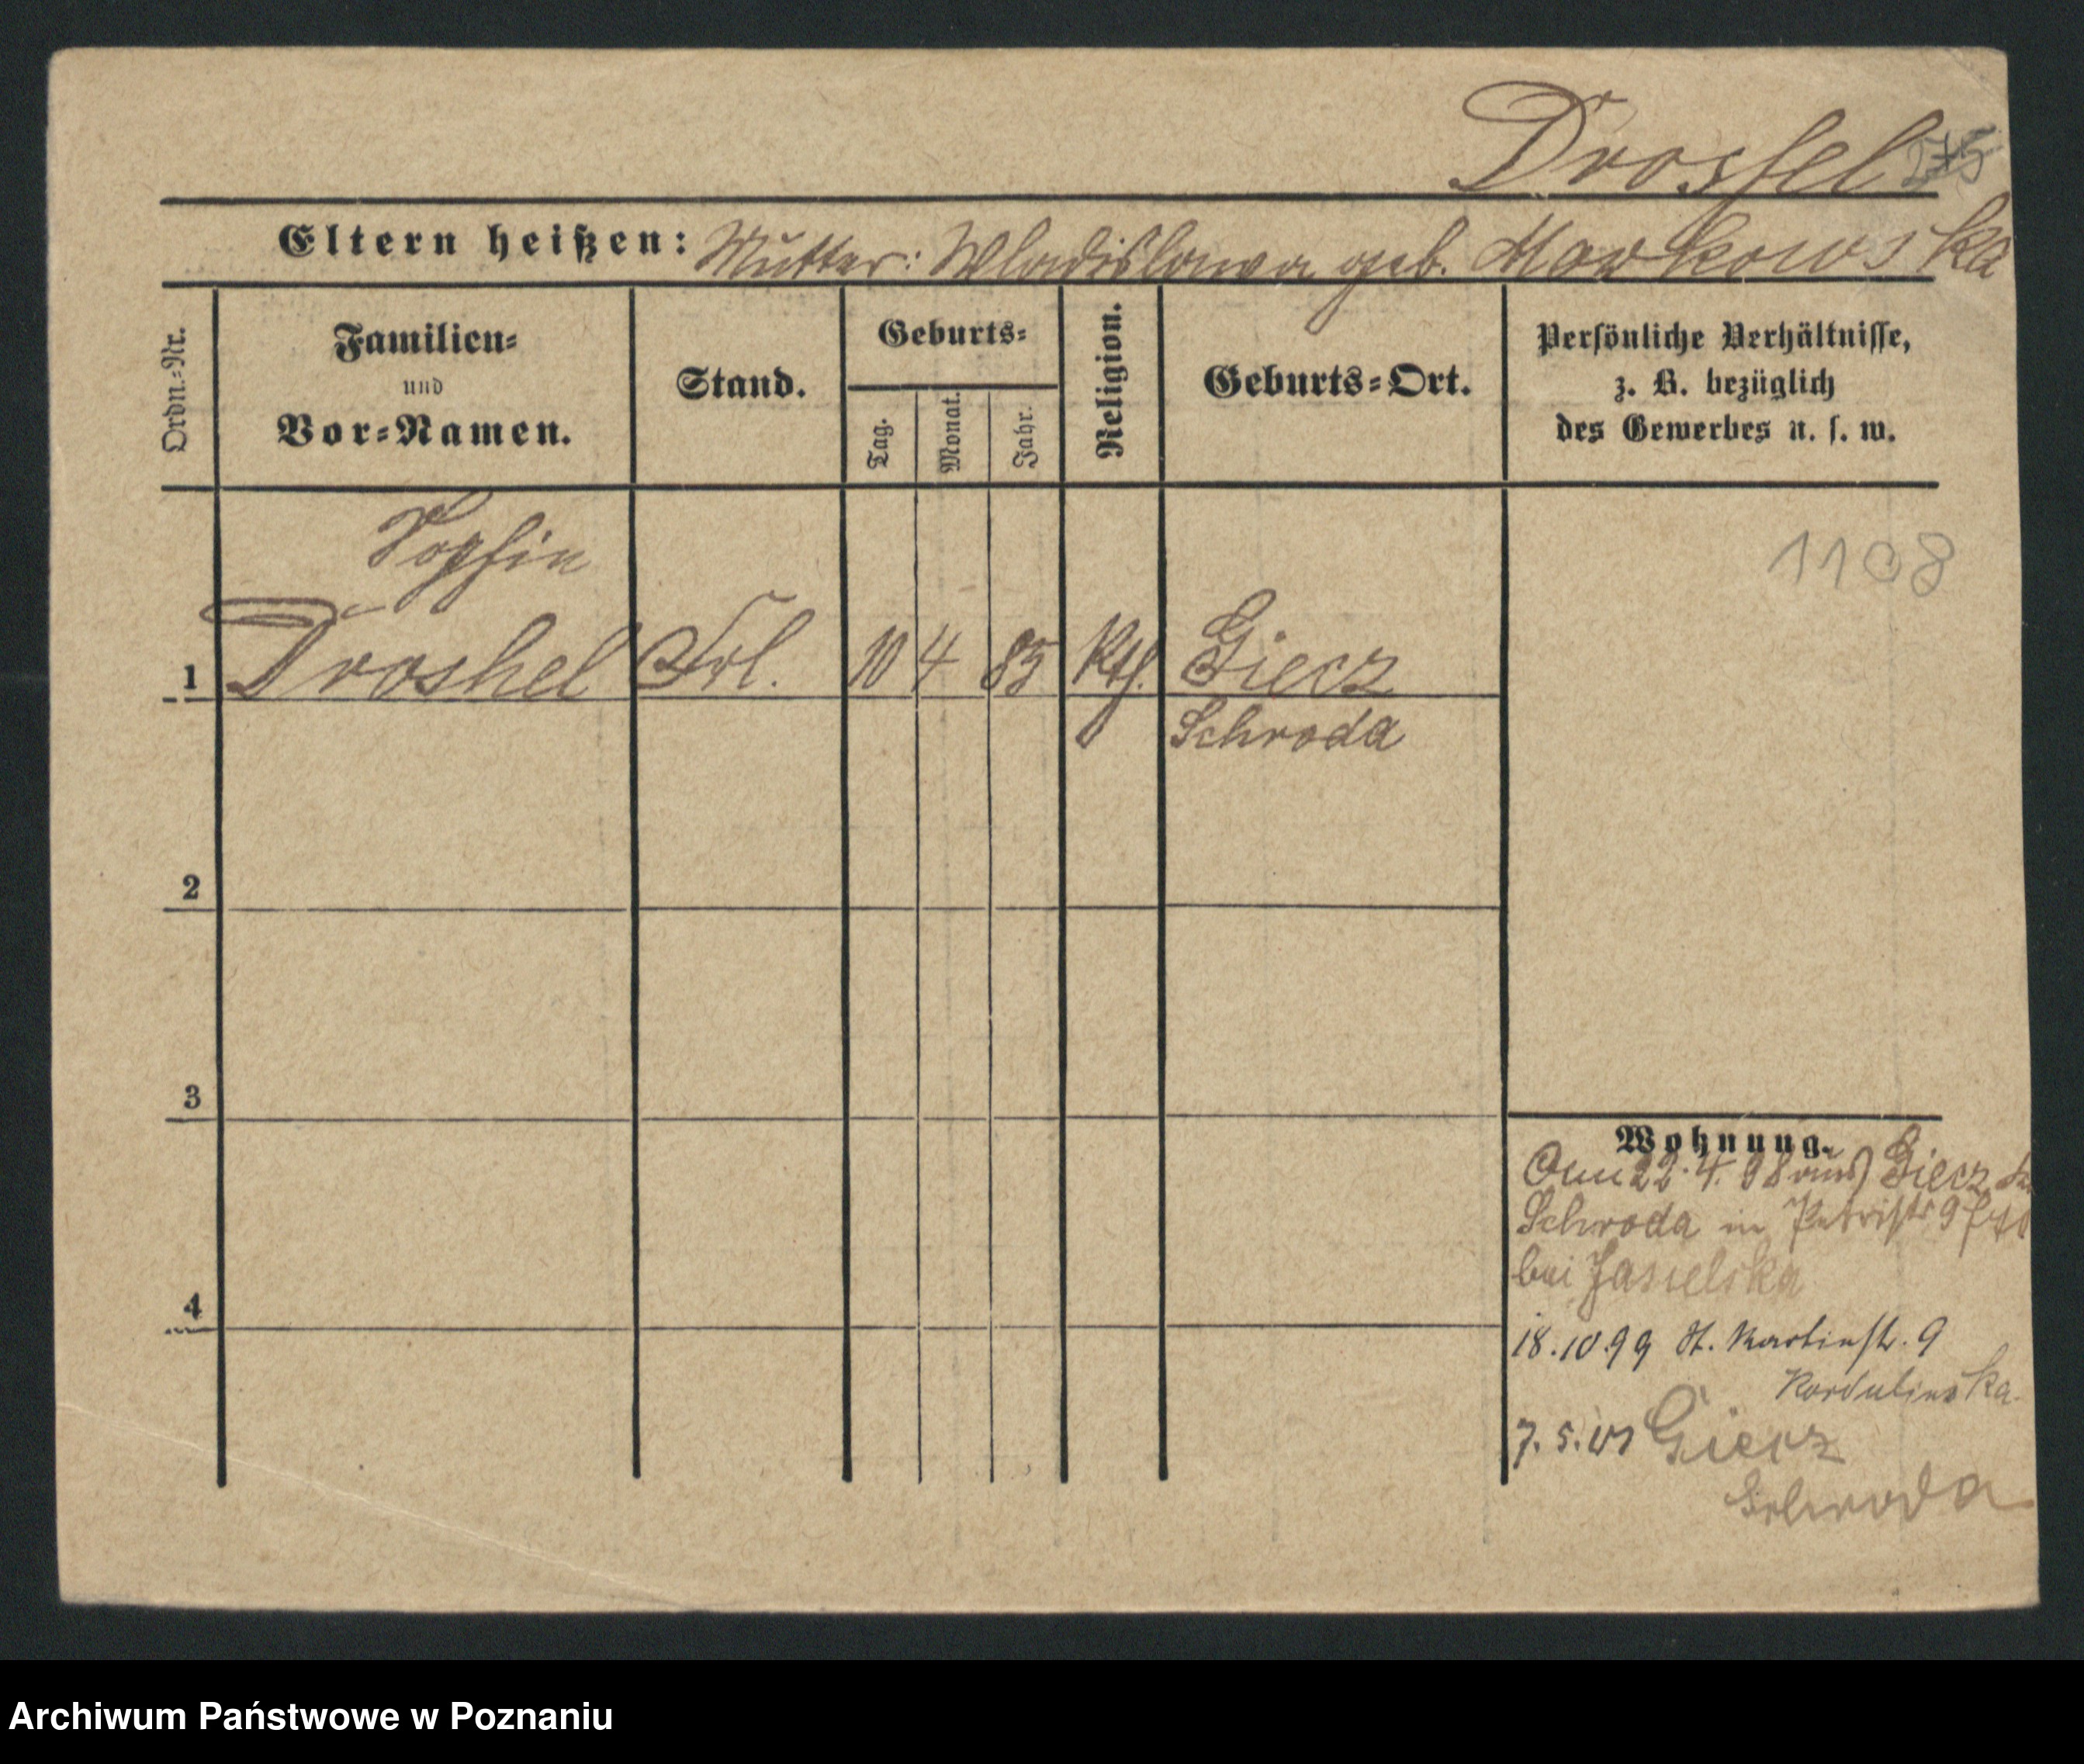 Drossel
Eltern heißen: Mutter: Wladislawa geb. Markowska
Ordn.-Nr.
Familien-
und
Vor-Namen.
Stand.
Geburts-
Tag.
Monat.
Jahr.
Religion.
Geburts-Ort.
Persönliche Verhältnisse,
z. B. bezüglich
des Gewerbes u. s. w.
Sophie
1108
1 Droshel Frl. 10 4 85 Kth. Giecz
Schroda
2
3
4
Wohnung.
22.4.98 aus Giecz
Schroda in Petristr 9
bei Jasielska
18.10.99 St. Martinstr. 9
7.5.01 Giecz
Schroda
Archiwum Państwowe w Poznaniu